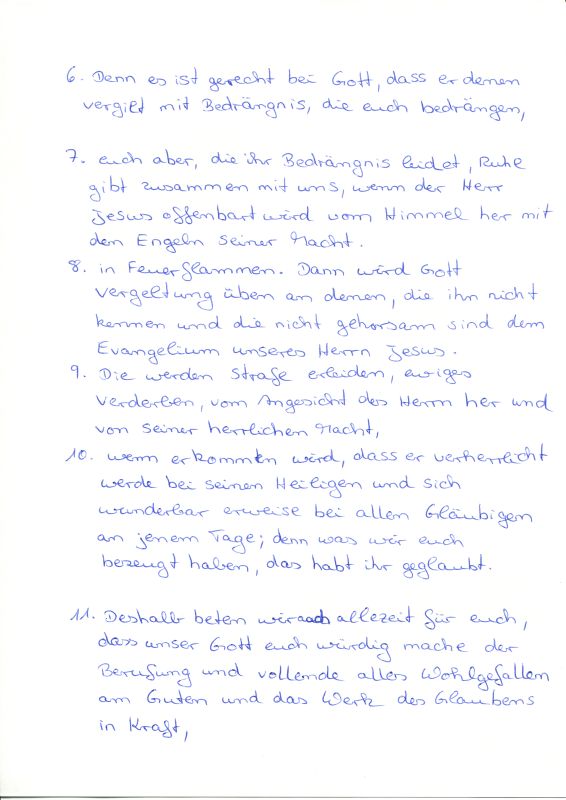 6. Denn es ist gerecht bei Gott, dass er denen
vergilt mit Bedrängnis, die euch bedrängen,
7. euch aber, die ihr Bedrängnis leidet, Ruhe
gibt zusammen mit uns, wenn der Herr
Jesus offenbart wird vom Himmel her mit
den Engeln seiner Macht.
8. in Feuerflammen. Dann wird Gott
Vergeltung üben an denen, die ihn nicht
kennen und die nicht gehorsam sind dem
Evangelium unseres Herrn Jesus.
9. Die werden Strafe erleiden, ewiges
Verderben, vom Angesicht des Herrn her und
von seiner herrlichen Macht,
10. wenn er kommen wird, dass er verherrlicht
werde bei seinen Heiligen und sich
wunderbar erweise bei allen Gläubigen
an jenem Tage; denn was wir euch
bezeugt haben, das habt ihr geglaubt.
11. Deshalb beten wir auch allezeit für euch,
dass unser Gott euch würdig mache der
Berufung und vollende alles Wohlgefallen
am Guten und das Werk des Glaubens
in Kraft,